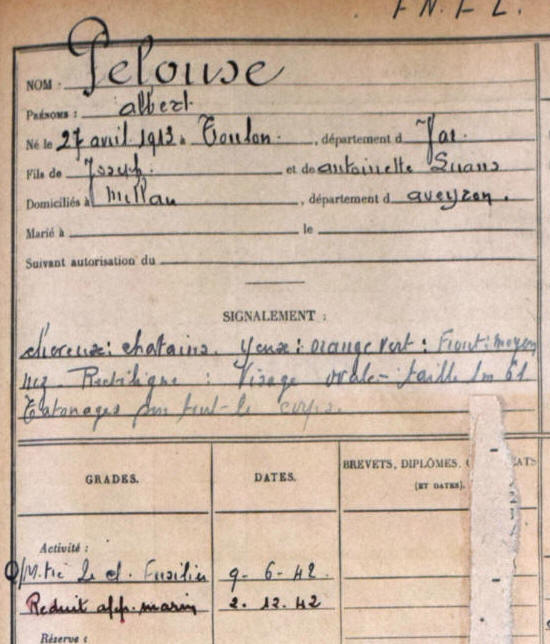 F.N.F.L.
NOM : Pelouse
PRÉNOMS : albert
Né le 27 avril 1913 à Toulon. , département d Var.
Fils de Joseph. et de antoinette
Domiciliés à Millau , département d aveyron.
Marié à le
Suivant autorisation du
SIGNALEMENT :
cheveux: chatains. yeux: orange vert : Front: moyen
nez. Rectiligne : Visage ovale- taille 1m 61
Tatouages sur tout le corps.
GRADES. DATES. BREVETS, DIPLÔMES,
(ET DATES).
Activité :
Q/M. 2e cl. Fusilier 9- 6- 42.
Reduit app. marin 2. 12. 42
Réserve :